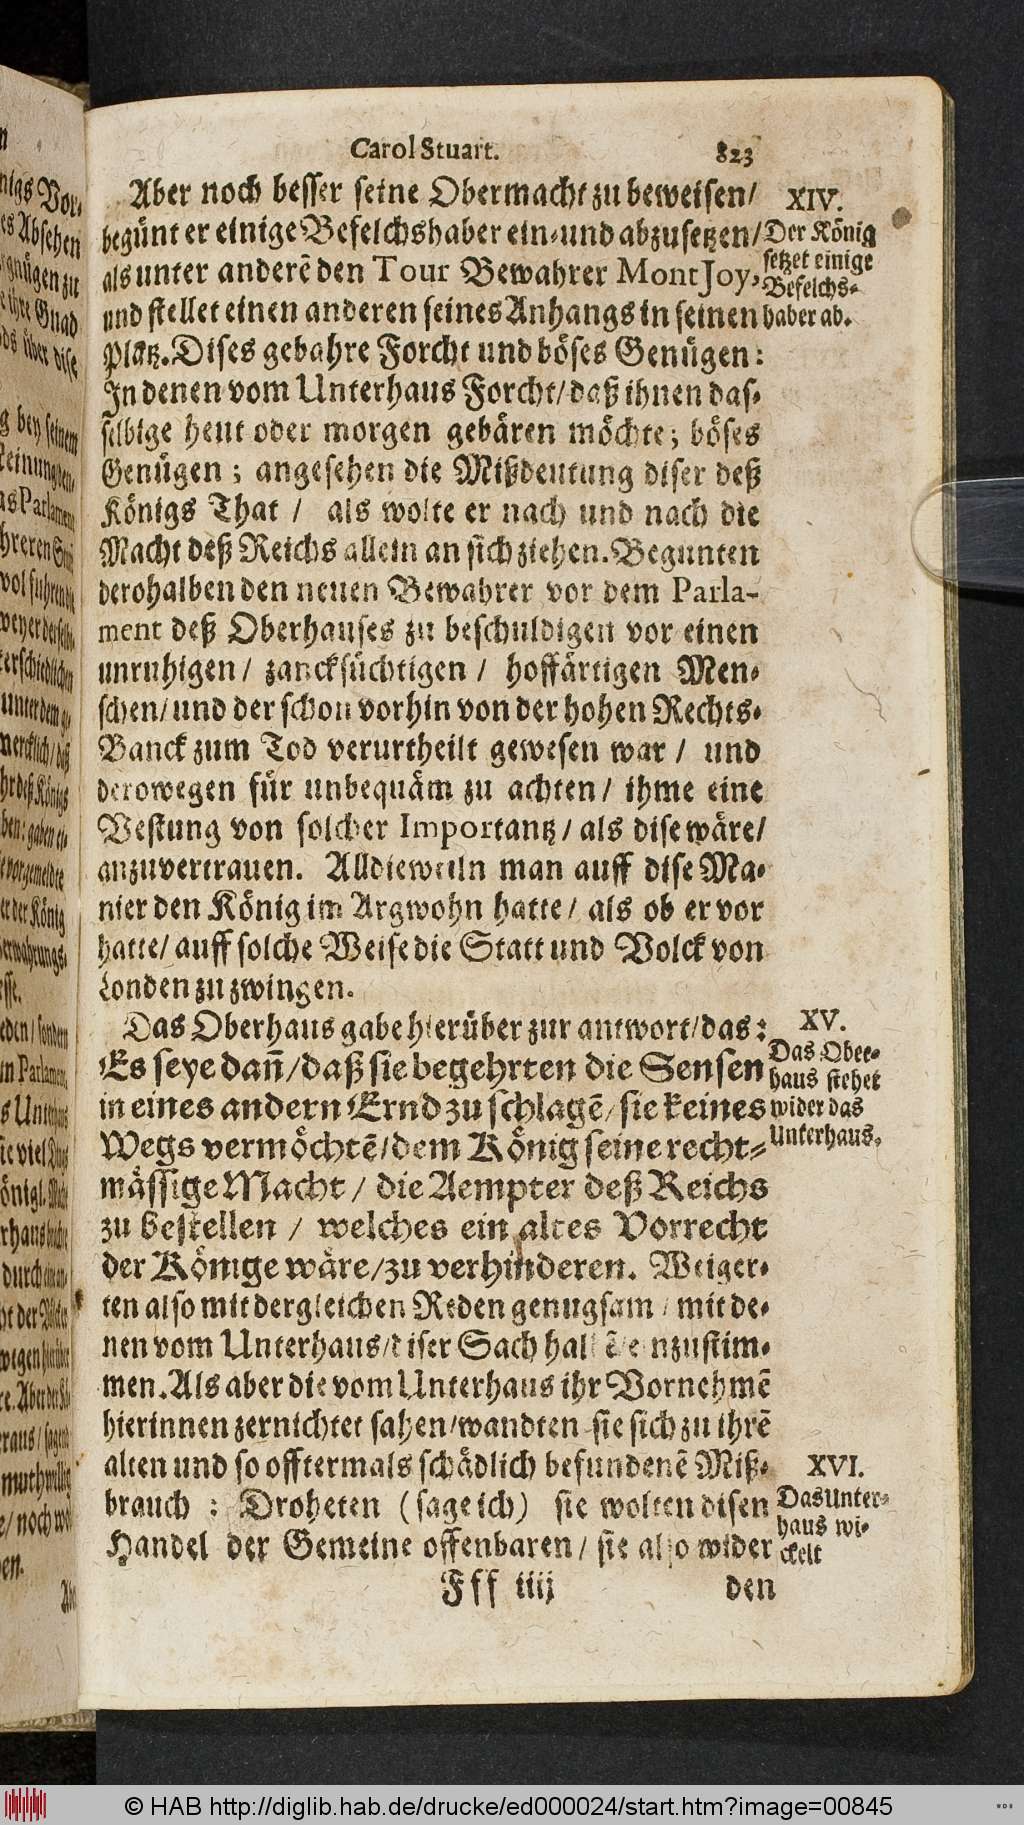 Carol Stuart. 823
Aber noch besser seine Obermacht zu beweisen/
begünt er einige Befelchshaber ein-und abzusetzen/
als unter anderē den Tour Bewahrer Mont Joy,
und stellet einen anderen seines Anhangs in seinen
Platz. Dises gebahre Forcht und böses Genügen:
In denen vom Unterhaus Forcht/ daß ihnen das-
selbige heut oder morgen gebären möchte; böses
Genügen; angesehen die Mißdeutung diser deß
Königs That/ als wolte er nach und nach die
Macht deß Reichs allein an sich ziehen. Begunten
derohalben den neuen Bewahrer vor dem Parla-
ment deß Oberhauses zu beschuldigen vor einen
unruhigen/ zancksüchtigen/ hoffärtigen Men-
schen/ und der schon vorhin von der hohen Rechts-
Banck zum Tod verurtheilt gewesen war/ und
derowegen für unbequäm zu achten/ ihme eine
Vestung von solcher Importantz/ als dise wäre/
anzuvertrauen. Alldieweiln man auff dise Ma-
nier den König im Argwohn hatte/ als ob er vor
hatte/ auff solche Weise die Statt und Volck von
Londen zu zwingen.
XIV.
Der König
setzet einige
Befelchs-
haber ab.
Das Oberhaus gabe hierüber zur antwort/ das:
Es seye dañ/ daß sie begehrten die Sensen
in eines andern Ernd zu schlagē/ sie keines
Wegs vermöchtē/ dem König seine recht-
mässige Macht/ die Aempter deß Reichs
zu bestellen/ welches ein altes Vorrecht
der Könige wäre/ zu verhinderen. Weiger-
ten also mit dergleichen Reden genugsam/ mit de-
nen vom Unterhaus/ diser Sach halbē/ einzustim-
men. Als aber die vom Unterhaus ihr Vornehmē
hierinnen zernichtet sahen/ wandten sie sich zu ihrē
alten und so offtermals schädlich befundenē Miß-
brauch: Droheten (sage ich) sie wolten disen
Handel der Gemeine offenbaren/ sie also wider
XV.
Das Ober-
haus stehet
wider das
Unterhaus.
XVI.
Das Unter-
haus wi-
ckelt
Fff iiij den
© HAB http://diglib.hab.de/drucke/ed000024/start.htm?image=00845